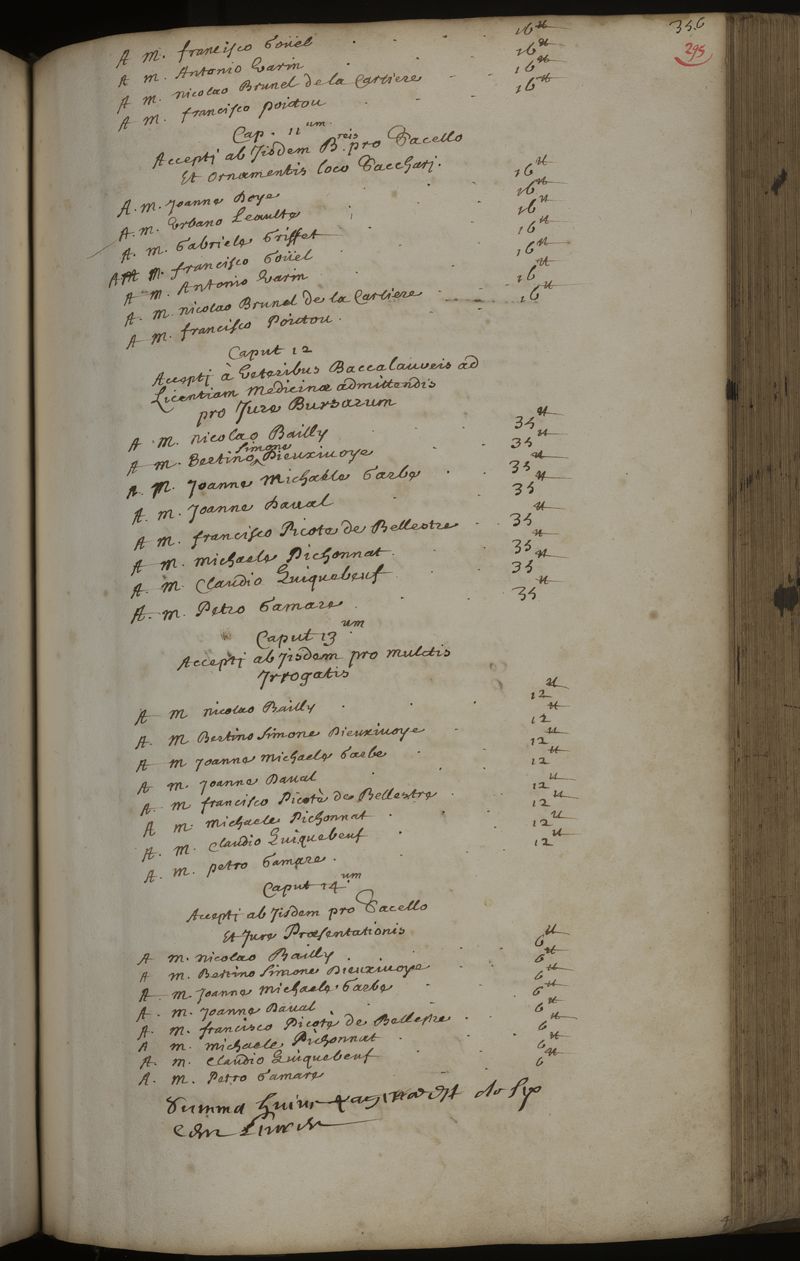 356
295
A m. francisco Goüel . . . 16ᵗᵗ
A m. Antonio Garin 16ᵗᵗ
A m. nicolao Brunel de la Carliere . 16ᵗᵗ
A m. francisco poictou . . 16ᵗᵗ
Cap. 11ᵘᵐ.
Accepti ab Jisdem B.ʳᵉⁱˢ pro Sacello
Et ornamentis loco Sacchari.
A. m. Joanne Doye 16ᵗᵗ
A. m. Urbano Leaulte 16ᵗᵗ
A. m. Gabriele Griffet 16ᵗᵗ
A m. francisco Goüel 16ᵗᵗ
A m. Antonio Garin 16ᵗᵗ
A. m. nicolao Brunel de la Carliere 16ᵗᵗ
A m. francisco Poictou . 16ᵗᵗ
Caput 12
Accepti à Veteribus Baccalaureis ad
Licentiam Medicinæ admittendis
pro Jure Bursarum
A . M. nicolao Bailly 35ᵗᵗ
A m. Bertino Simone Dieuxivoye 35ᵗᵗ
A. M. Joanne Michaele Garbe . 35ᵗᵗ
A. m. Joanne Daval 35ᵗᵗ
A m. francisco Picote de Bellestre . 35ᵗᵗ
A m. michaele Pichonnat . 35ᵗᵗ
A. m Claudio Quiquebeuf . 35ᵗᵗ
A. m. Petro Gamare . . 35ᵗᵗ
Caput 13ᵘᵐ
Accepti ab Jisdem pro mulctis
Jrrogatis
A m nicolao Bailly . . 12ᵗᵗ
A. m Bertino Simone Dieuxivoye . 12ᵗᵗ
A m Joanne michaele Garbe . 12ᵗᵗ
A m. Joanne Daval . 12ᵗᵗ
A. m francisco Picotè de Bellestre . 12ᵗᵗ
A m. michaele Pichonnat . 12ᵗᵗ
A. m. Claudio Quiquebeuf . 12ᵗᵗ
A. m. petro Gamare . . 12ᵗᵗ
Caput 14ᵘᵐ.
Accepti ab Jisdem pro Sacello
Et Jure Præsentationis
A m. nicolao Bailly . . 6ᵗᵗ
A m. Bertino Simone Dieuxivoye . 6ᵗᵗ
A m. Joanne Michaele Garbe . 6ᵗᵗ
A. m. Joanne Daval . 6ᵗᵗ
A. m. francisco Picotè de Bellestre . 6ᵗᵗ
A m. michaele Pichonnat . 6ᵗᵗ
A. m. Claudio Quiquebeuf . 6ᵗᵗ
A. m. Petro Gamare . 6ᵗᵗ
Summa huius paginae est